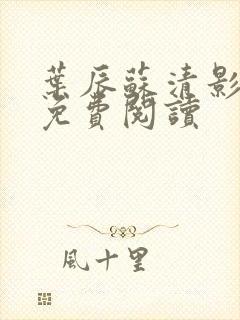 葉辰蘇清影
免費閱讀
風十里